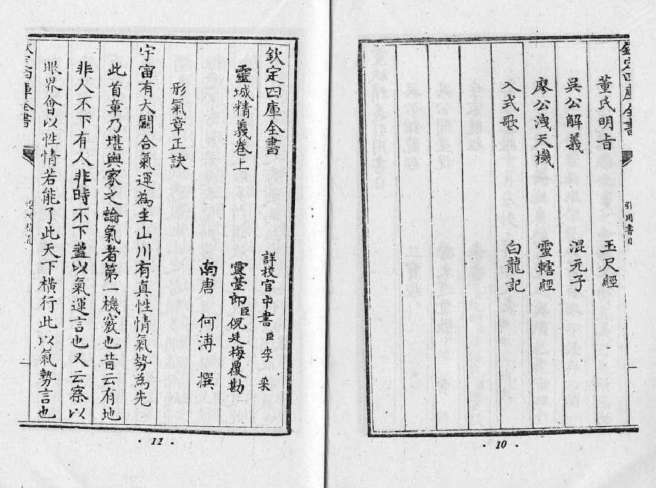 欽定四庫全書
引用書目
董氏明旨 玉尺經
吳公解義 混元子
廖公洩天機 靈轄經
入式歌 白龍記
· 10 ·
欽定四庫全書
詳校官中書臣李采
靈臺郎臣倪廷梅覆勘
靈城精義卷上
南唐 何溥 撰
形氣章正訣
宇宙有大關合氣運為主山川有真性情氣勢為先
此首章乃堪輿家之論氣者第一機竅也昔云有地
非人不下有人非時不下葢以氣運言也又云察以
眼界會以性情若能了此天下橫行此以氣勢言也
欽定四庫全書
· 11 ·